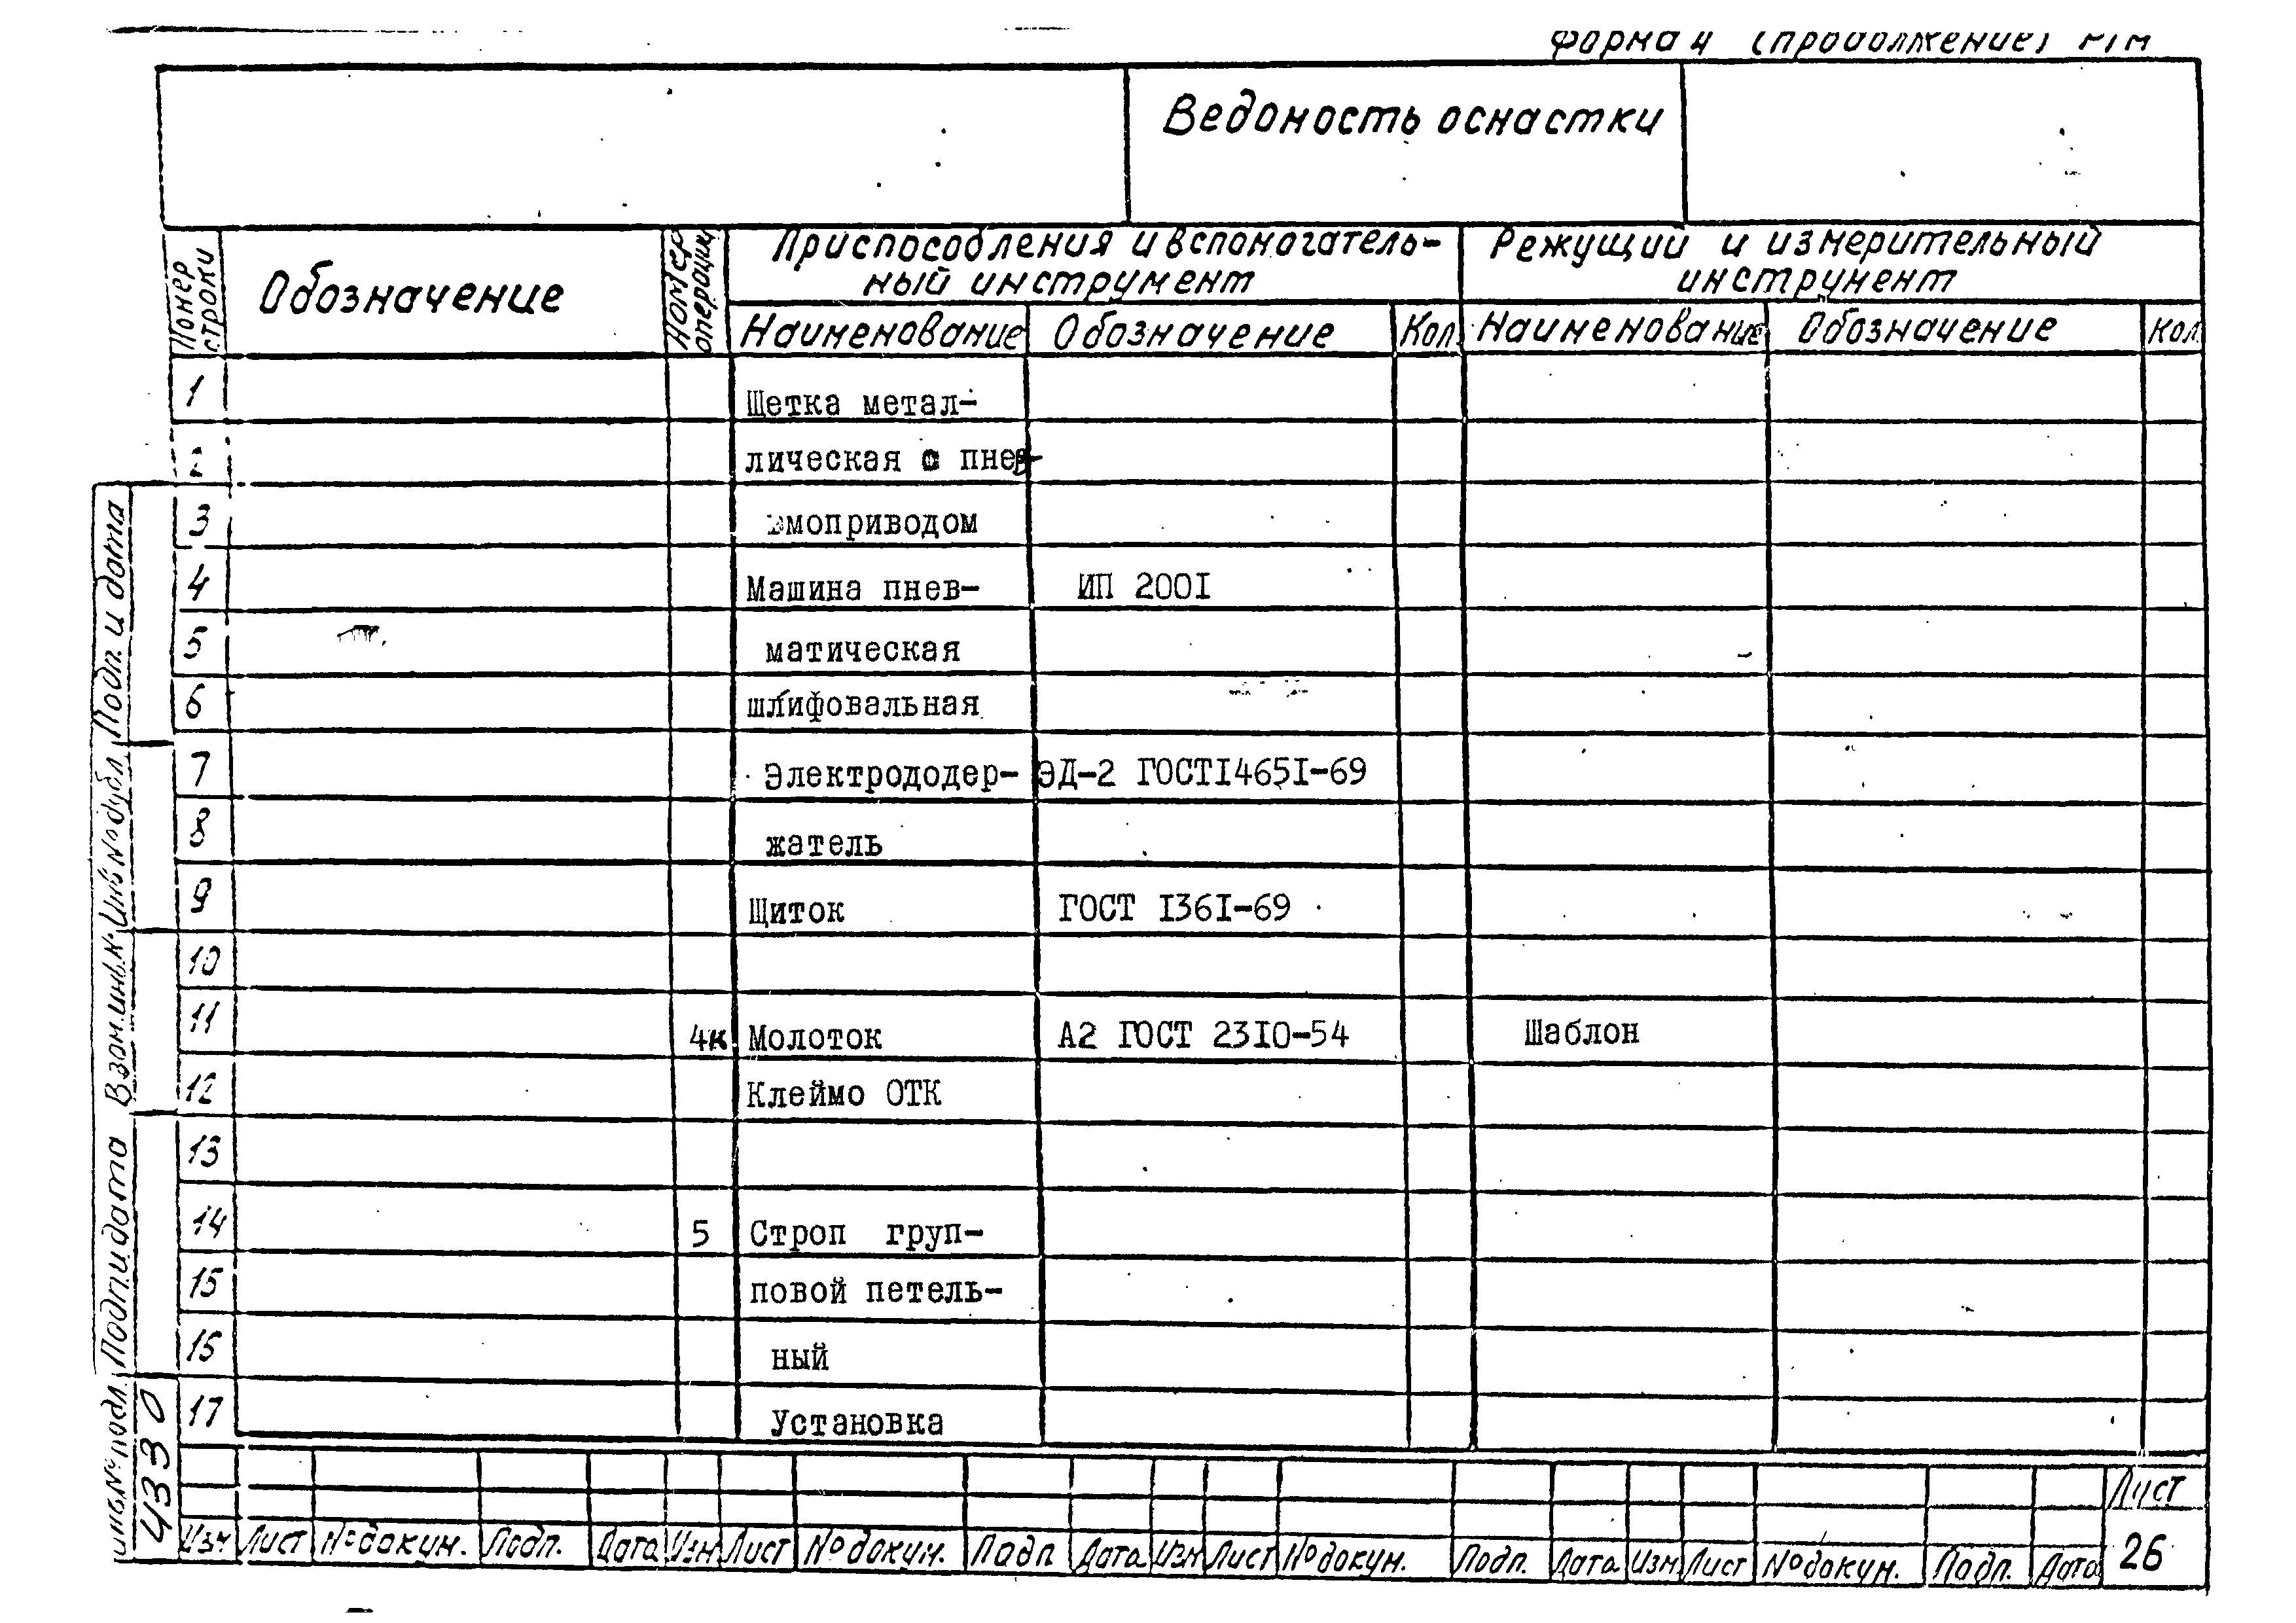 Форма 4 (продолжение)
Ведомость оснастки
Номер строки
Обозначение
Номер операции
Приспособления и вспомогатель-
ный инструмент
Режущий и измерительный
инструмент
Наименование Обозначение Кол. Наименование Обозначение Кол.
1 Щетка метал-
2 лическая с пнев-
3 моприводом
4 Машина пнев- ИП 200I
5 матическая
6 шлифовальная
7 Электрододер- ЭД-2 ГОСТI465I-69
8 жатель
9 Щиток ГОСТ I36I-69
10
11 4к Молоток А2 ГОСТ 23I0-54 Шаблон
12 Клеймо ОТК
13
14 5 Строп груп-
15 повой петель-
16 ный
17 Установка
Лист
Изм Лист № докум. Подп. Дата Изм Лист № докум. Подп Дата Изм Лист № докум. Подп. Дата Изм Лист № докум. Подп. Дата 26
Подп. и дата
Инв № дубл
Взам. инв. №
Подп и дата
Инв. № подл.
4330